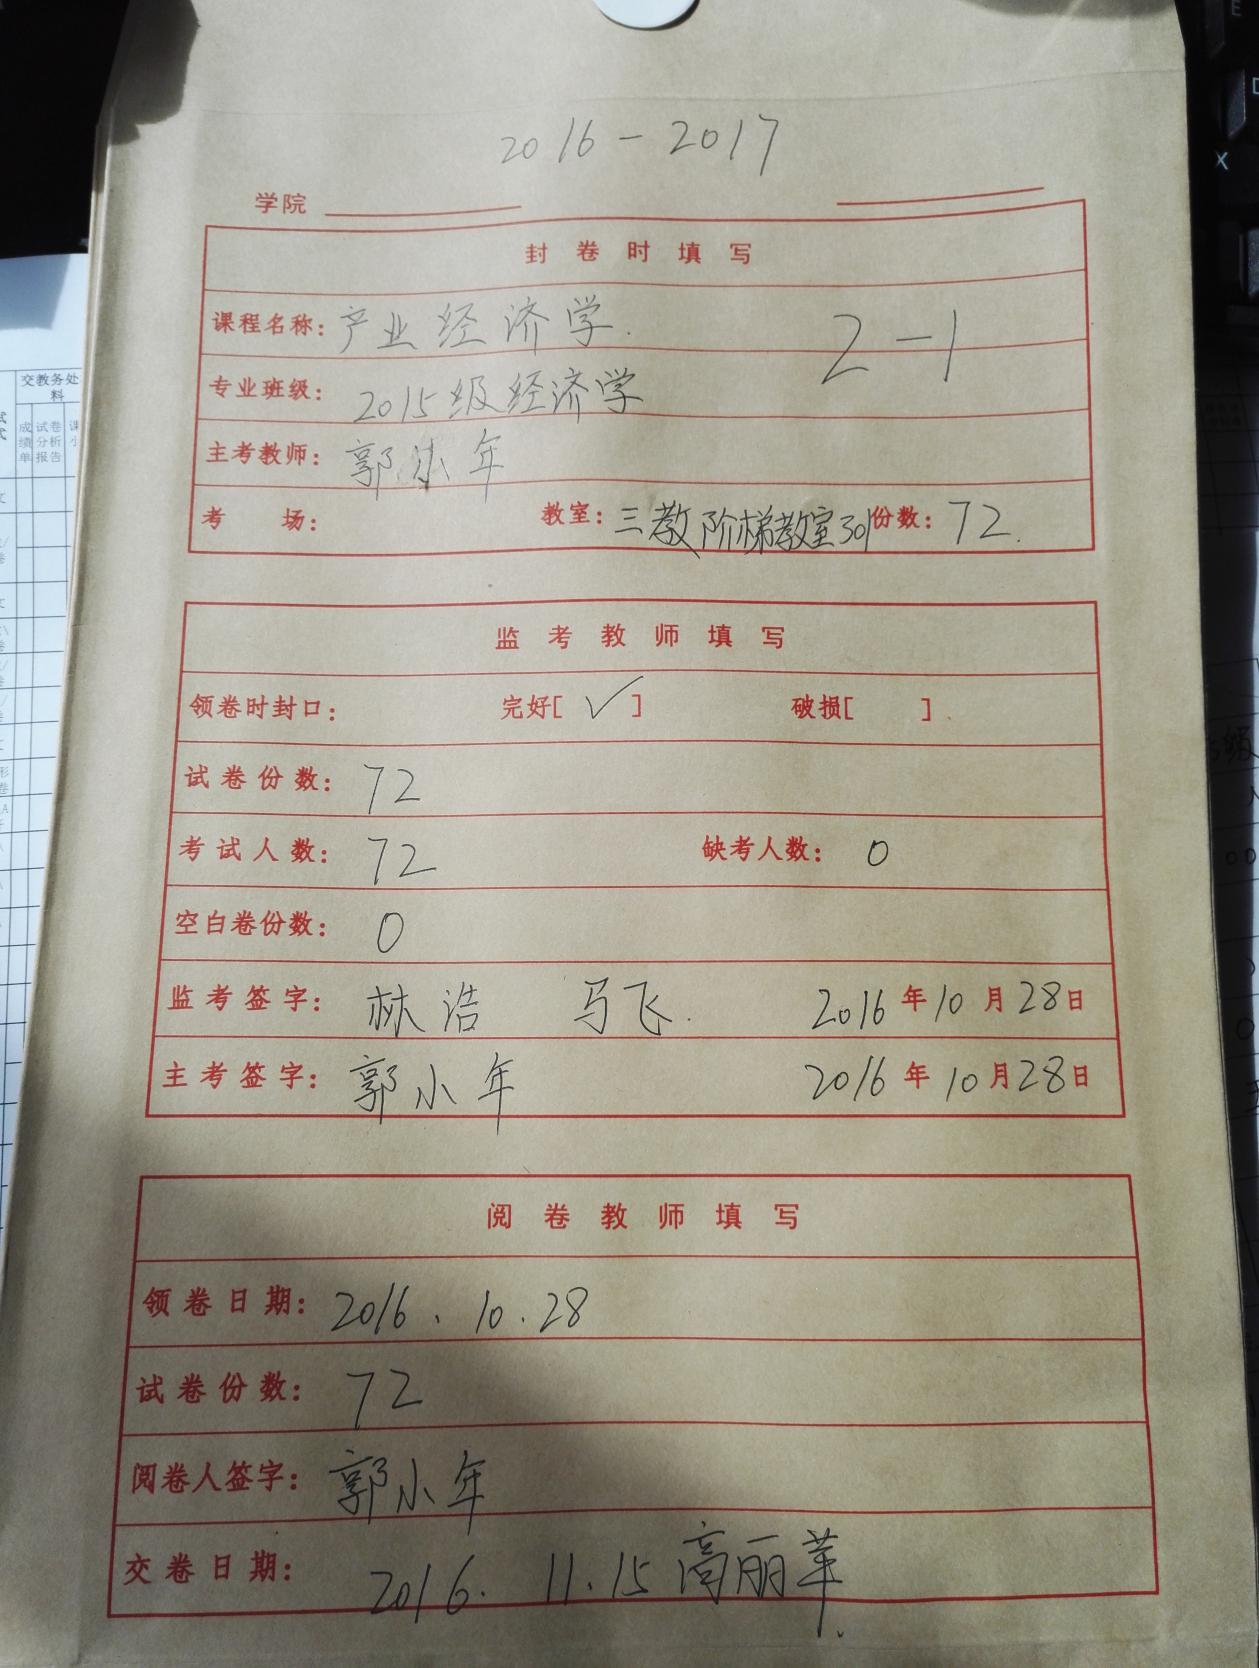 2016-2017
学院
封卷时填写
课程名称: 产业经济学. 2-1
专业班级: 2015级经济学
主考教师: 郭小年
考 场: 教室: 三教阶梯教室301 份数: 72.
监考教师填写
领卷时封口: 完好[ ✓ ] 破损[ ]
试卷份数: 72
考试人数: 72 缺考人数: 0
空白卷份数: 0
监考签字: 林浩 马飞. 2016年10月28日
主考签字: 郭小年 2016年10月28日
阅卷教师填写
领卷日期: 2016.10.28
试卷份数: 72
阅卷人签字: 郭小年
交卷日期: 2016.11.15 高丽苹.
交教务处
料
成绩单
试卷分析报告